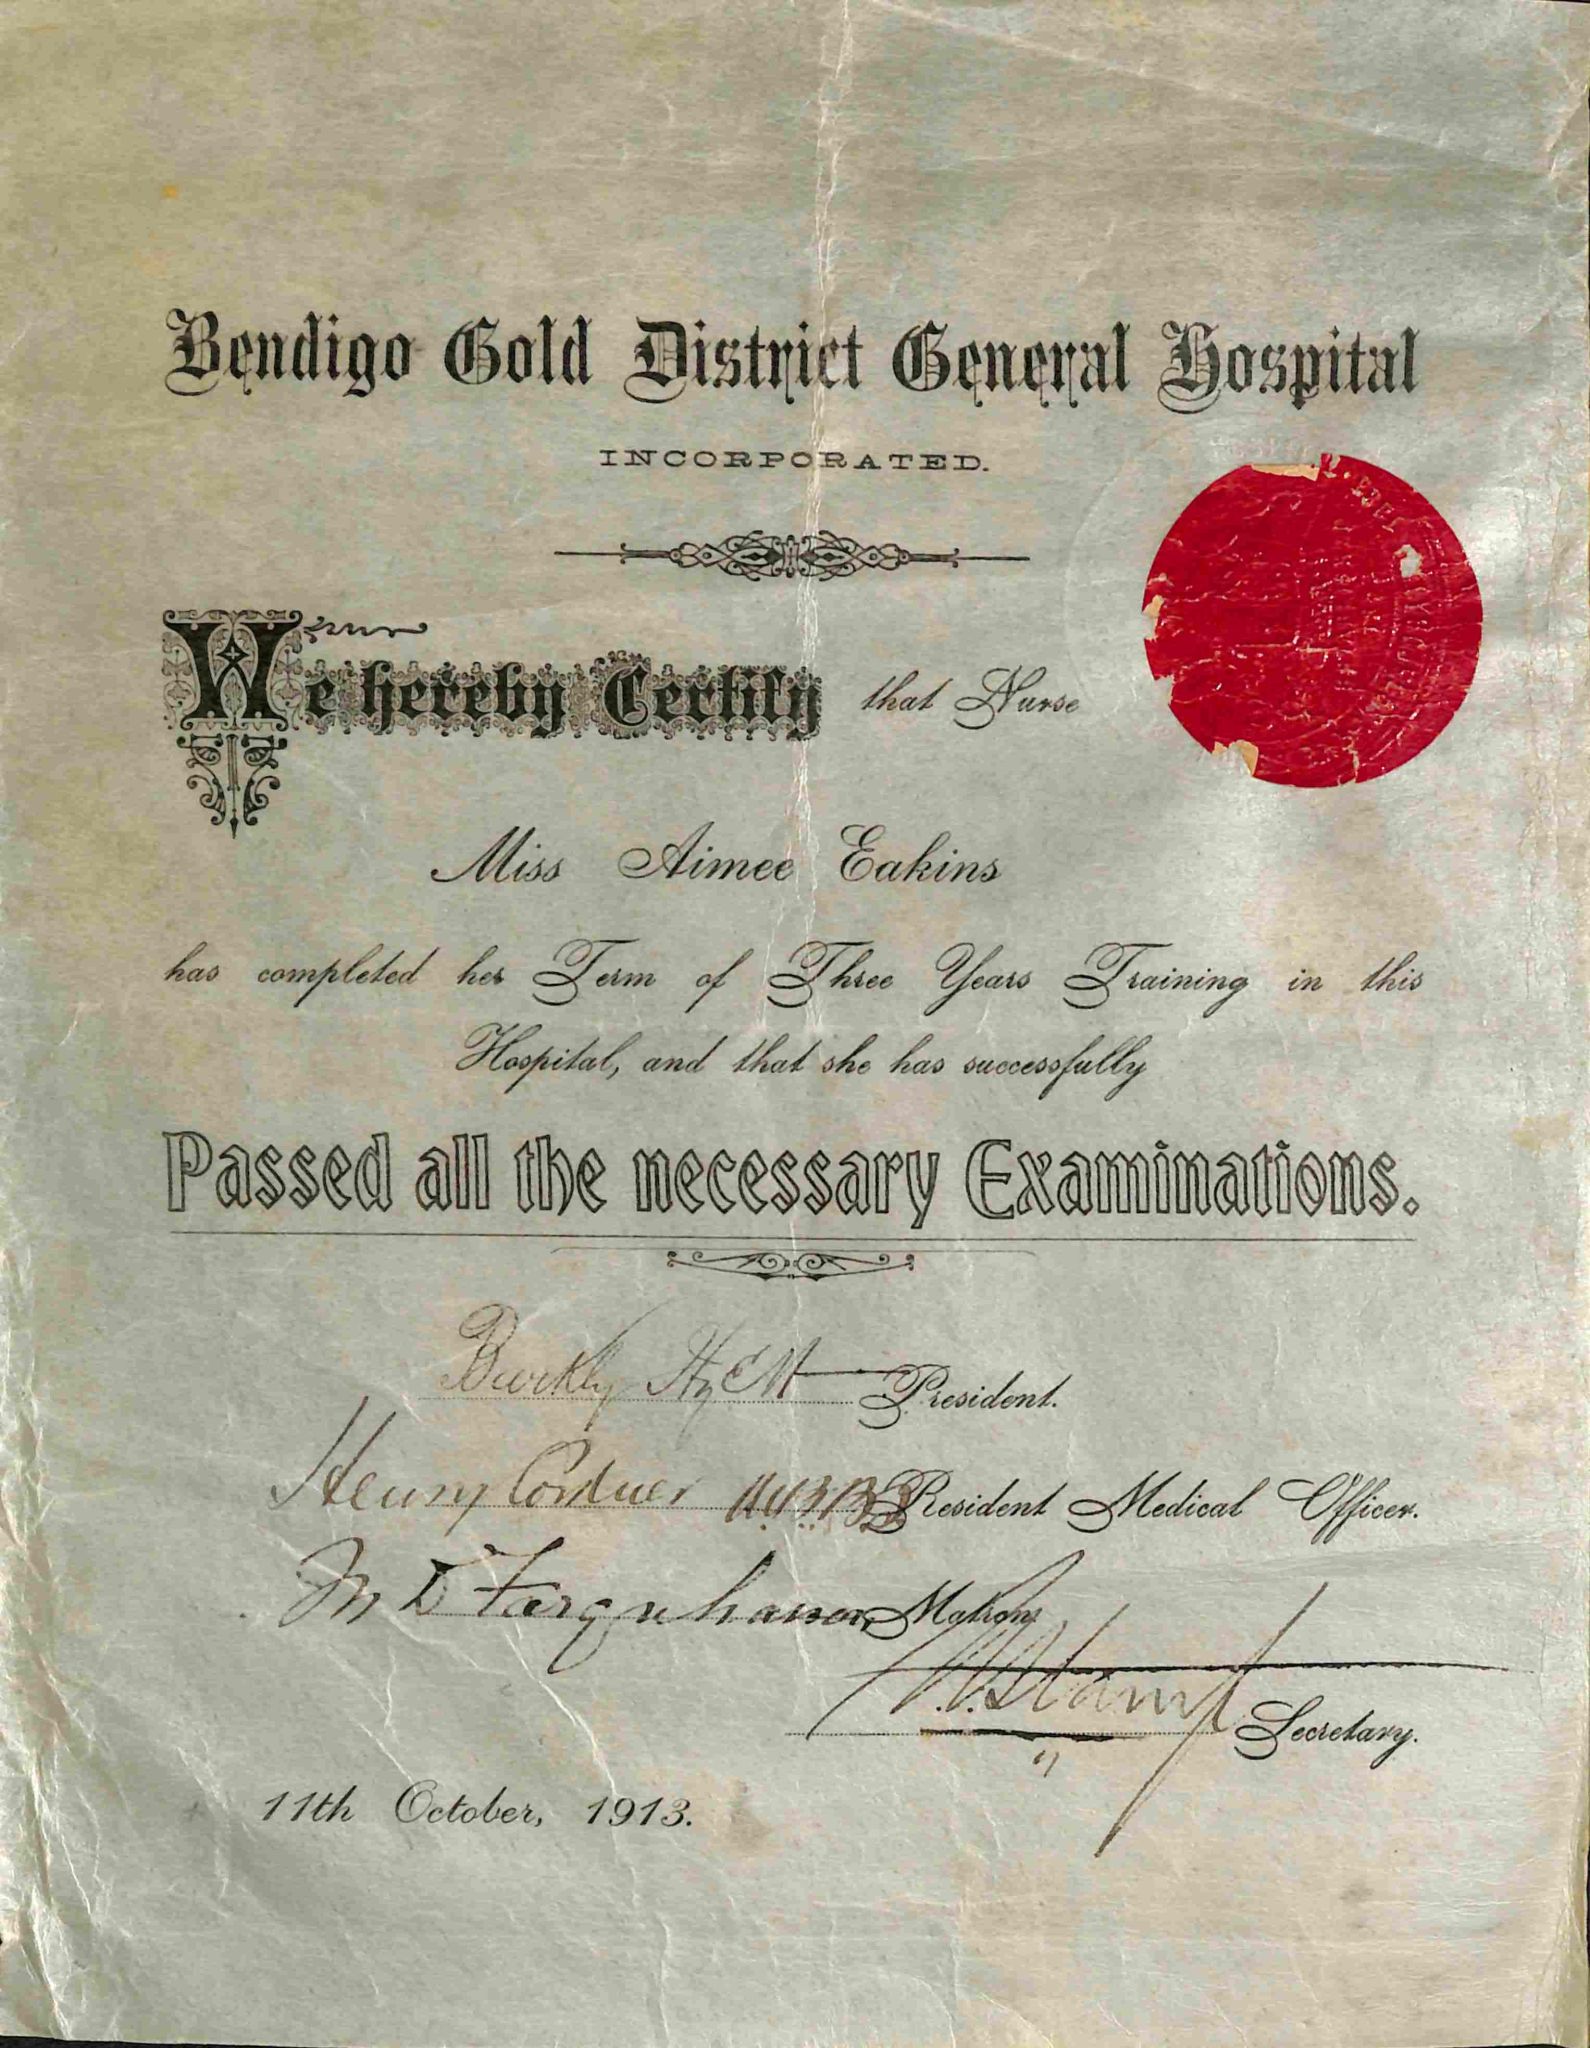 Bendigo Gold District General Hospital
INCORPORATED.
We hereby Certify that Nurse
Miss Aimee Eakins
has completed her Term of Three Years Training in this
Hospital, and that she has successfully
Passed all the necessary Examinations.
President.
Henry Cordner M.B.B.S. Resident Medical Officer.
M D Farquharson, Matron
Secretary.
11th October, 1913.